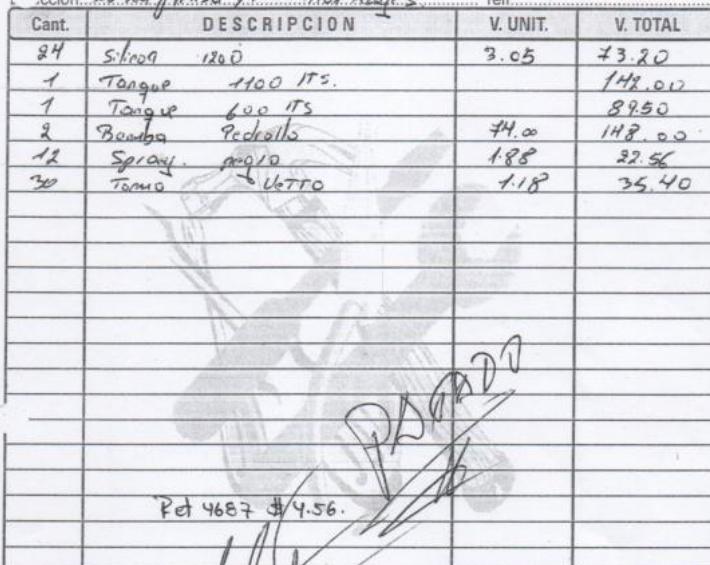 Cant. DESCRIPCION V. UNIT. V. TOTAL
24 Silicon 1200 3.05 73.20
1 Tanque 1100 lTS. 142.00
1 Tanque 600 lTS 89.50
2 Bomba Pedrollo 74.00 148.00
12 Spray. negro 1.88 22.56
30 Tomo VeTTO 1.18 35.40
PAGADO
Ret 4687 $ 4.56.